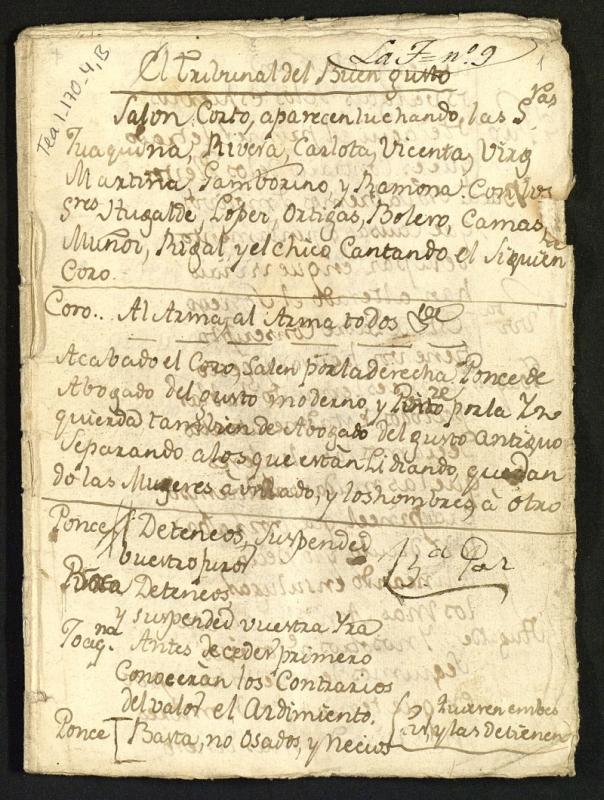 La F= nº 9
1
Tea 1-170-4, B
El Tribunal del Buen gusto
Salon Corto, aparecen luchando, las S.ras
Juaquina, Rivera, Carlota, Vicenta, Virg
Martina, Tamborino, y Ramona. Con los
Sres. Hugalde, Loper, Ortigas, Bolero, Camas
Muñoz, Rigal, y el chico Cantando el Siguien
te
Coro.
Coro.. Al Arma, al Arma todos &c
Acabado el Coro, Salen por la derecha, Ponce de
Abogado del gusto moderno, y por la Yz
quierda tambien de Abogado del gusto antiguo
Separando a los que estàn Lidiando, quedan
do las Mugeres à un lado, y los hombres, à otro
Ponce Deteneos, Suspended
vuestro furor
Deteneos
y suspended vuestra Yra
Joaq.na Antes de ceder primero
Conoceràn los Contrarios
del valor el Ardimiento.
quieren embes
tir, y las detienen
Ponce Basta, no Osados, y Necios